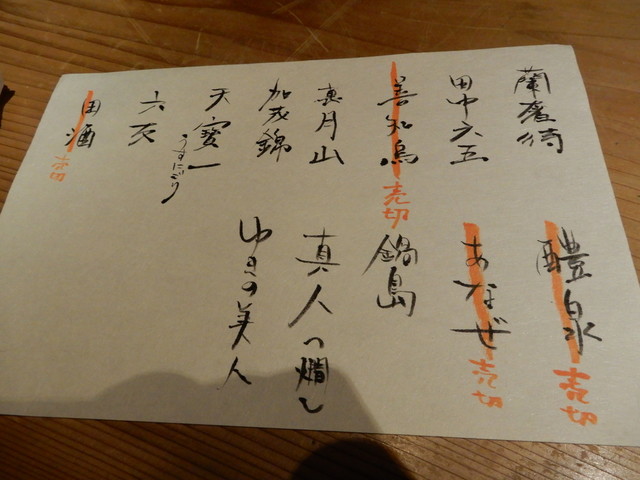 蘭奢待
醴泉 売切
田中六五
あなぜ 売切
善知鳥 売切
鍋島
月山
真人(燗)
加茂錦
ゆきの美人
天寳一
うすにごり
六
田酒 売切